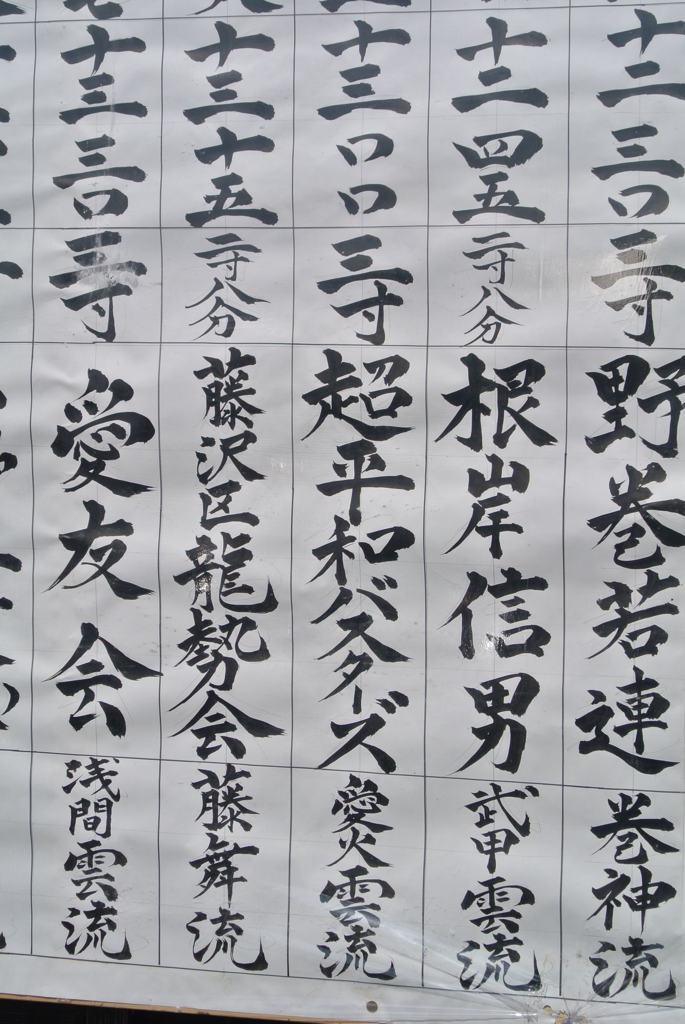 十二 三〇 三寸 野巻若連 巻神流
十二 四五 二寸八分 根岸信男 武甲雲流
十三 〇〇 三寸 超平和バスターズ 愛火雲流
十三 十五 二寸八分 藤沢区龍勢会 藤舞流
十三 三〇 三寸 愛友会 浅間雲流